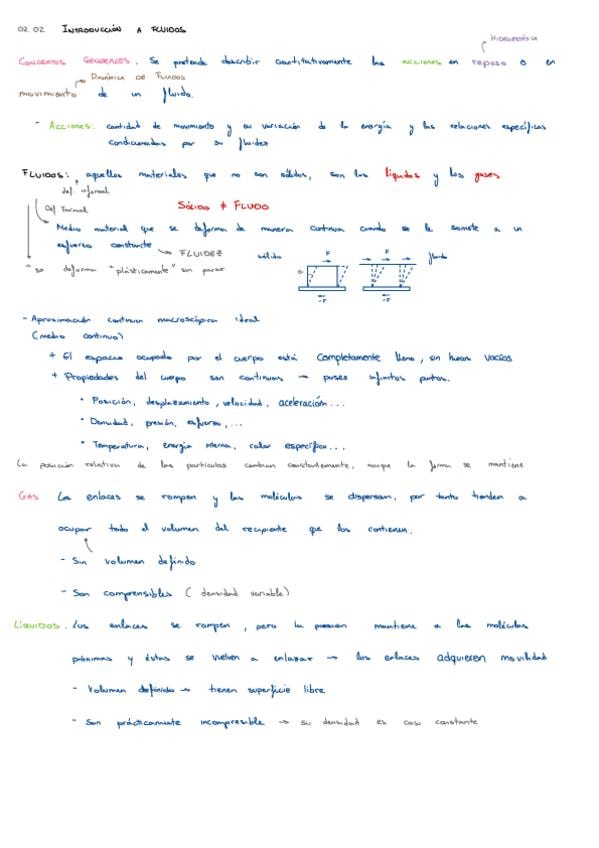 02.02 INTRODUCCIÓN A FLUIDOS
HIDROSTÁTICA
CONCEPTOS GENERALES. Se pretende describir cuantitativamente las acciones en reposo o en
DINÁMICA DE FLUIDOS
movimiento de un fluido.
- Acciones: cantidad de movimiento y su variación de la energía y las relaciones específicas
condicionadas por su fluidez
FLUIDOS: aquellos materiales que no son sólidos, son los líquidos y los gases
def. informal
Def Formal
SÓLIDO ≠ FLUIDO
Medio material que se deforma de manera continua cuando se le somete a un
esfuerzo constante → FLUIDEZ
sólido F F fluido
" se deforma "plásticamente" sin parar
- Aproximación continua macroscópica ideal
(medio continuo)
+ El espacio ocupado por el cuerpo está completamente lleno, sin huecos vacíos
+ Propiedades del cuerpo son continuas → posee infinitos puntos.
· Posición, desplazamiento, velocidad, aceleración...
· Densidad, presión, esfuerzo,...
· Temperatura, energía interna, calor específico...
La posición relativa de las partículas cambian constantemente, aunque la forma se mantiene
GAS Los enlaces se rompen y las moléculas se dispersan, por tanto tienden a
ocupar todo el volumen del recipiente que los contienen.
- Sin volumen definido
- Son comprensibles (densidad variable)
LÍQUIDOS. Los enlaces se rompen, pero la presión mantiene a las moléculas
próximas y éstas se vuelven a enlazar → los enlaces adquieren movilidad
- Volumen definido → tienen superficie libre
- Son prácticamente incompresible → su densidad es casi constante